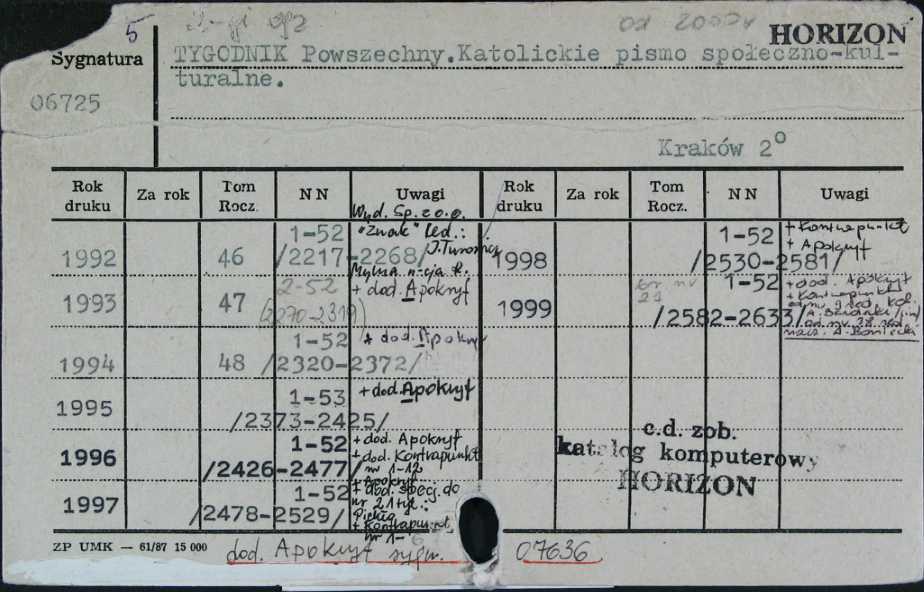 5
HORIZON
Sygnatura
TYGODNIK Powszechny.Katolickie pismo społeczno-kul-
turalne.
06725
Kraków 2º
Rok druku Za rok Tom Rocz. N N Uwagi Rok druku Za rok Tom Rocz. N N Uwagi
Wyd. Sp. z o.o.
"Znak" red.:
1992 46 1-52 /2217-2268/
1998 1-52 /2530-2581/ + Kontrapunkt
+ Apokryf
1993 47 2-52 (2270-2319) + dod. Apokryf
1999 1-52 /2582-2633/ + dod. Apokryf
+ Kontrapunkt
1994 48 1-52 /2320-2372/ + dod. Apokryf
1995 1-53 /2373-2425/ + dod. Apokryf
1996 1-52 /2426-2477/ + dod. Apokryf
+ dod. Kontrapunkt
nr 1-12
+ Apokryf
1997 1-52 /2478-2529/ + dod. specj. do
nr 21
+ Kontrapunkt
c.d. zob.
katalog komputerowy
HORIZON
ZP UMK — 61/87 15 000
dod. Apokryf sygn. 07636